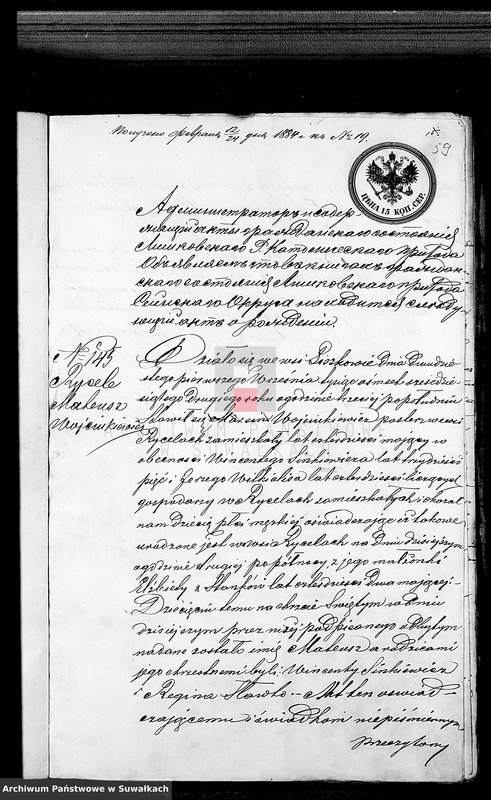 Получено Февраля 12/24 дня 1884 г. къ № 19.
59
ЦѢНА 15 КОП. СЕР.
Администраторъ и содер-
жащій акты гражданскаго состоянія
Лишковскаго Р. Католическаго прихода
Объявляетъ что въ книгахъ граждан-
скаго состоянія Лишковскаго прихода
Сейнскаго Округа находится слѣду-
ющій актъ о рожденіи.
№ 145
Rycele
Mateusz
Wojcinkiewicz
Działo się we wsi Liszkowie dnia dwudzie-
stego pierwszego Września tysiąc ośmset sześćdzie-
siątego drugiego roku o godzinie trzeciej popołudniu
Stawił się Wojcinkiewicz we wsi
Rycelach zamieszkały lat czterdzieści mający w
obecności Wincentego Sinkiewicza lat trzydzieści
pięć i Jerzego Witkalisa lat czterdzieści liczących
gospodarzy w Rycelach zamieszkałych i okazał
nam dziecię płci męzkiej oświadczając iż takowe
urodzone jest we wsi Rycelach na dniu dzisiejszym
o godzinie drugiej po północy z jego małżonki
Elżbiety z lat czterdzieści dwa mającej.
Dziecięciu temu na chrzcie Świętym w dniu
dzisiejszym przez niżej podpisanego odbytym
nadane zostało imię Mateusz a rodzicami
jego chrzestnemi byli: Wincenty Sinkiewicz
i Regina – Akt ten oświad-
czającemu i świadkom niepiśmiennym
przeczytany
Archiwum Państwowe w Suwałkach